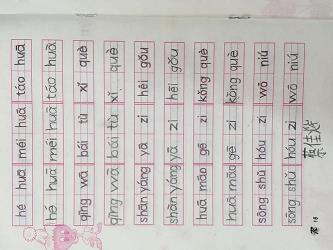 hé huā méi huā táo huā
hé huā méi huā táo huā
qīng wā bái tù xǐ què
qīng wā bái tù xǐ què
shān yáng yā zi hēi gǒu
shān yáng yā zi hēi gǒu
huā māo gē zi kǒng què
huā māo gē zi kǒng què
sōng shǔ hóu zi wō niú
sōng shǔ hóu zi wō niú
18